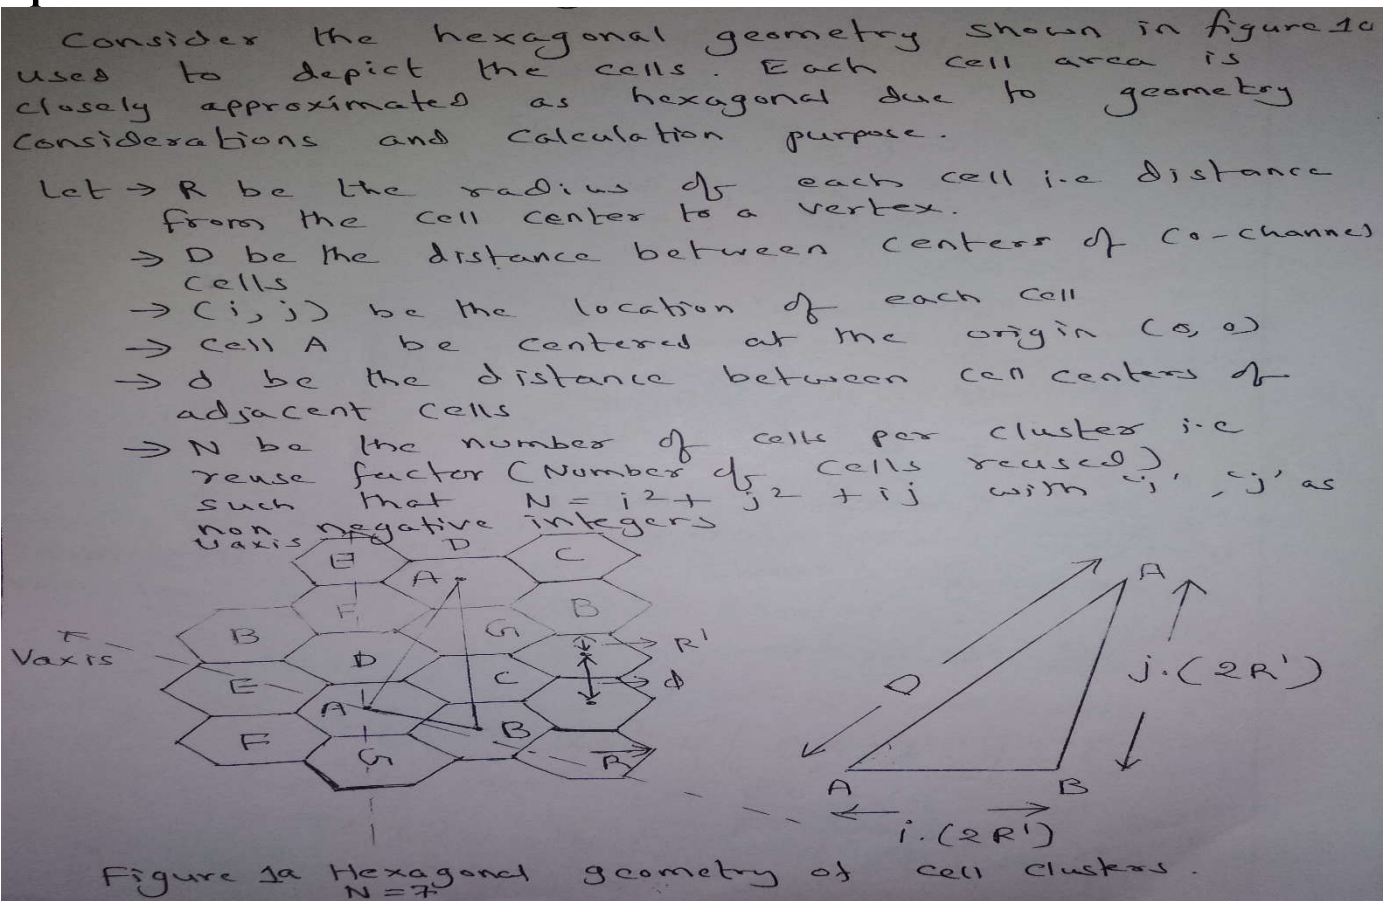 Consider the hexagonal geometry shown in figure 1a
used to depict the cells. Each cell area is
closely approximated as hexagonal due to geometry
considerations and calculation purpose.
Let → R be the radius of each cell i.e distance
from the cell center to a vertex.
→ D be the distance between centers of co-channel
cells
→ (i, j) be the location of each cell
→ cell A be centered at the origin (0, 0)
→ d be the distance between cell centers of
adjacent cells
→ N be the number of cells per cluster i.e
reuse factor (Number of cells reused)
such that N = i² + j² + ij with 'i', 'j' as
non negative integers
U axis
E D C
A
F B
B G R'
V axis
D
E C d
A
B
F
G R
D A
j.(2R')
A B
i.(2R')
Figure 1a Hexagonal geometry of cell clusters.
N = 7